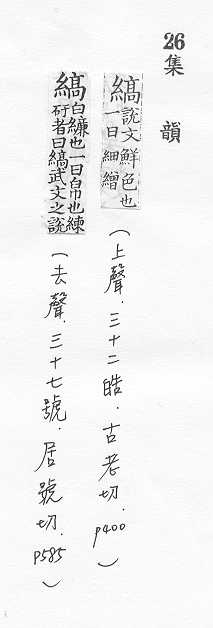 26
集韻
縞說文鮮色也一曰細繒
(上聲．三十二皓．古老切．P400)
縞白縑也一曰帛也練𥿊者曰縞武文之說
(去聲．三十七號．居號切．P585)